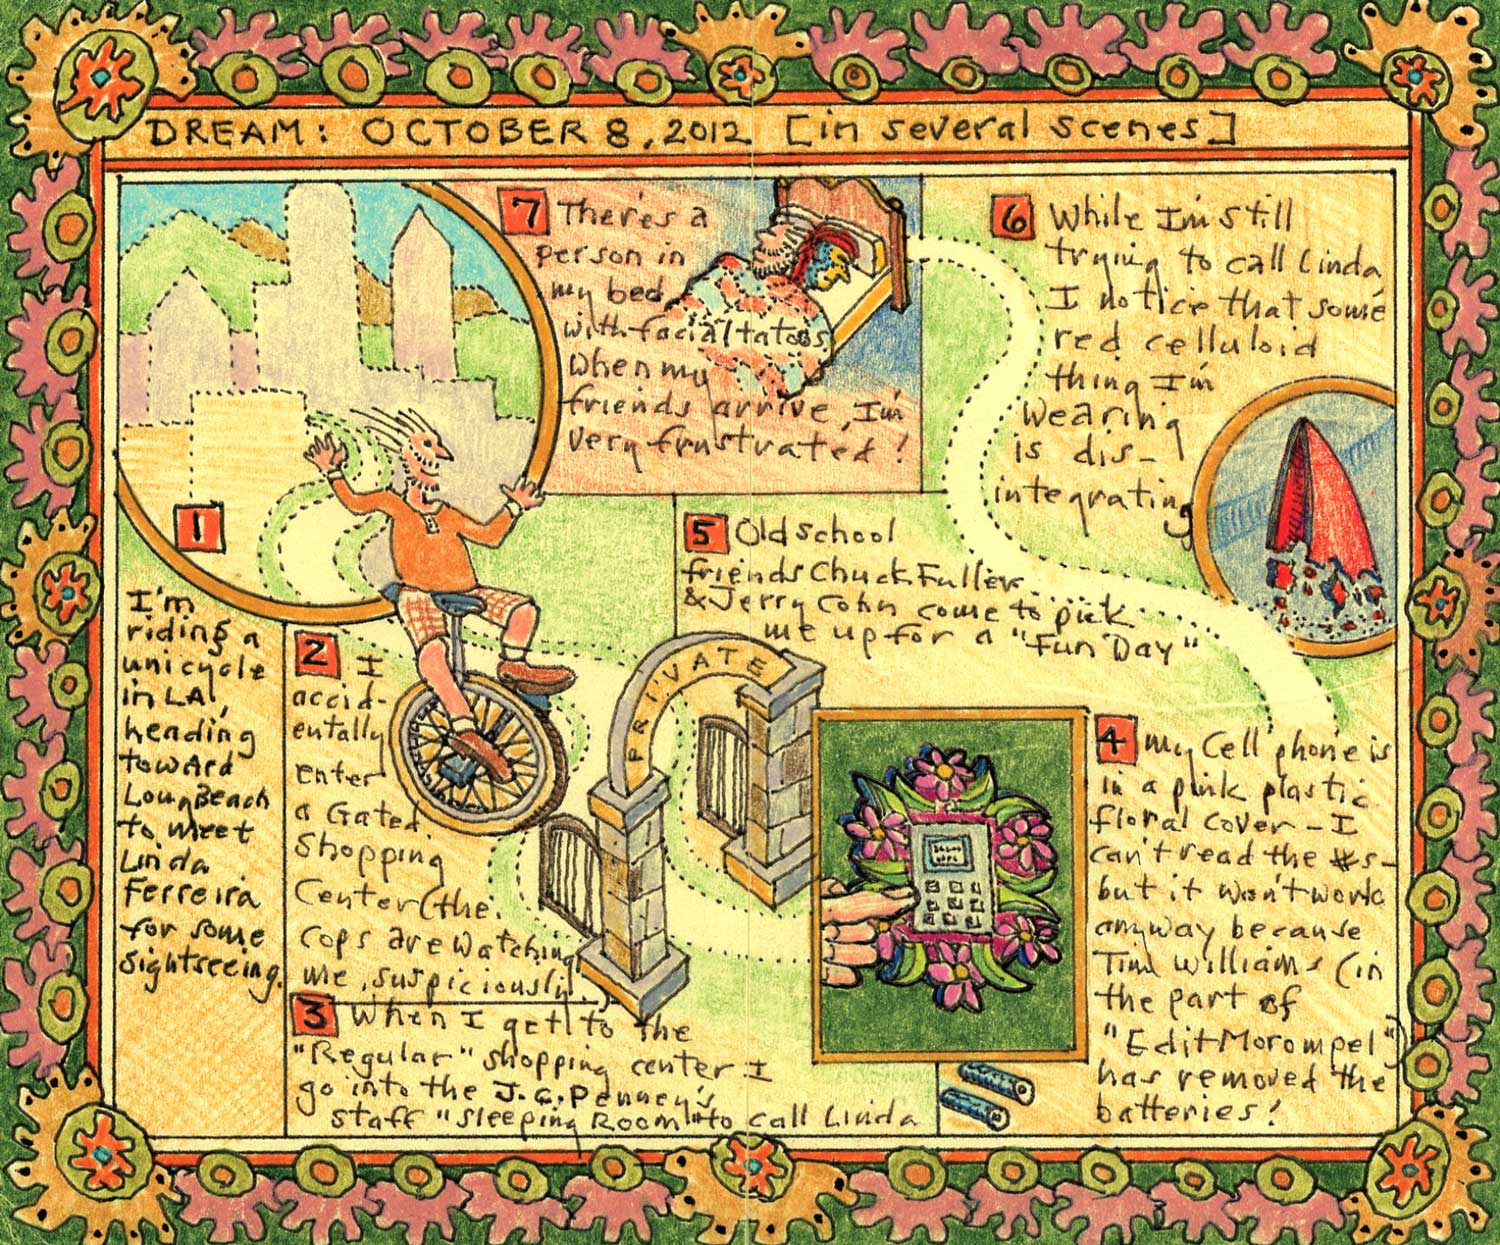 DREAM: OCTOBER 8, 2012 [in several scenes]
1
I'm
riding a
unicycle
in LA,
heading
toward
Long Beach
to meet
Linda
Ferreira
for some
sightseeing.
2 I
accid-
entally
enter
a Gated
Shopping
Center (the
cops are watching
me suspiciously.
PRIVATE
3 When I get to the
"Regular" shopping center I
go into the J.C. Penney's
staff "Sleeping Room" to call Linda
4 My Cell phone is
in a pink plastic
floral cover - I
can't read the #s -
but it won't work
anyway because
Tim Williams (in
the part of
"Edit Morompel")
has removed the
batteries!
5 Old school
friends Chuck Fuller
& Jerry Cohn come to pick
me up for a "Fun Day"
6 While I'm still
trying to call Linda
I notice that some
red celluloid
thing I'm
wearing
is dis-
integrating
7 There's a
person in
my bed
with facial tatoos
When my
friends arrive, I'm
very frustrated!